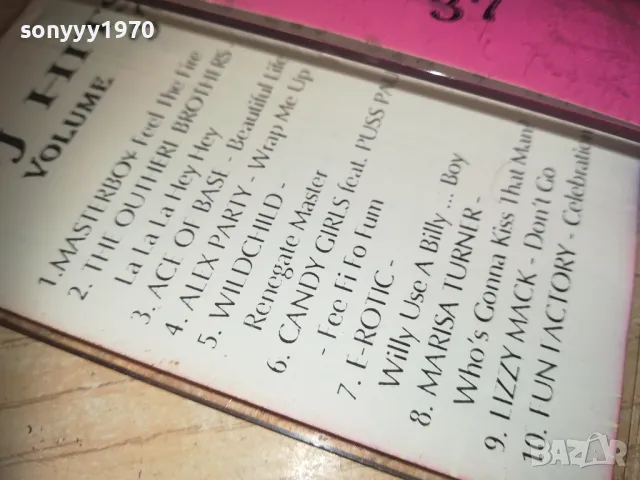 sonyyy1970
37
J HITS
VOLUME
1.MASTERBOY- Feel The Fire
2. THE OUTHERE BROTHERS -
La La La Hey Hey
3. ACE OF BASE - Beautiful Life
4. ALEX PARTY - Wrap Me Up
5. WILDCHILD -
Renegate Master
6. CANDY GIRLS feat. PUSS
- Fee Fi Fo Fum
7. E-ROTIC -
Willy Use A Billy ... Boy
8. MARISA TURNER -
Who's Gonna Kiss That Mann
9. LIZZY MACK - Don't Go
10. FUN FACTORY - Celebration
BAZAR
bg